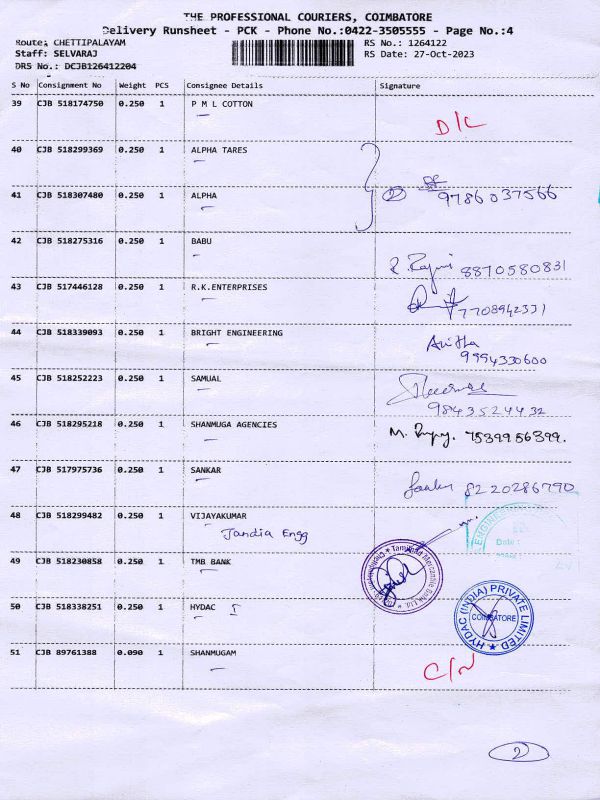 THE PROFESSIONAL COURIERS, COIMBATORE
Delivery Runsheet - PCK - Phone No.:0422-3505555 - Page No.:4
Route: CHETTIPALAYAM
Staff: SELVARAJ
DRS No.: DCJB126412204
RS No.: 1264122
RS Date: 27-Oct-2023
S No Consignment No Weight PCS Consignee Details Signature
39 CJB 518174750 0.250 1 P M L COTTON
D/C
40 CJB 518299369 0.250 1 ALPHA TARES
41 CJB 518307480 0.250 1 ALPHA
2 9786037566
42 CJB 518275316 0.250 1 BABU
8870580831
43 CJB 517446128 0.250 1 R.K.ENTERPRISES
7708942331
44 CJB 518339093 0.250 1 BRIGHT ENGINEERING
Anitha
9994330600
45 CJB 518252223 0.250 1 SAMUAL
9843524432
46 CJB 518295218 0.250 1 SHANMUGA AGENCIES
7539956399.
47 CJB 517975736 0.250 1 SANKAR
8220286790
48 CJB 518299482 0.250 1 VIJAYAKUMAR
Jandia Engg
Date :
49 CJB 518230858 0.250 1 TMB BANK
Tamilnad Mercantile Bank Ltd.
50 CJB 518338251 0.250 1 HYDAC
HYDAC (INDIA) PRIVATE LIMITED
COIMBATORE
51 CJB 89761388 0.090 1 SHANMUGAM
C/N
2